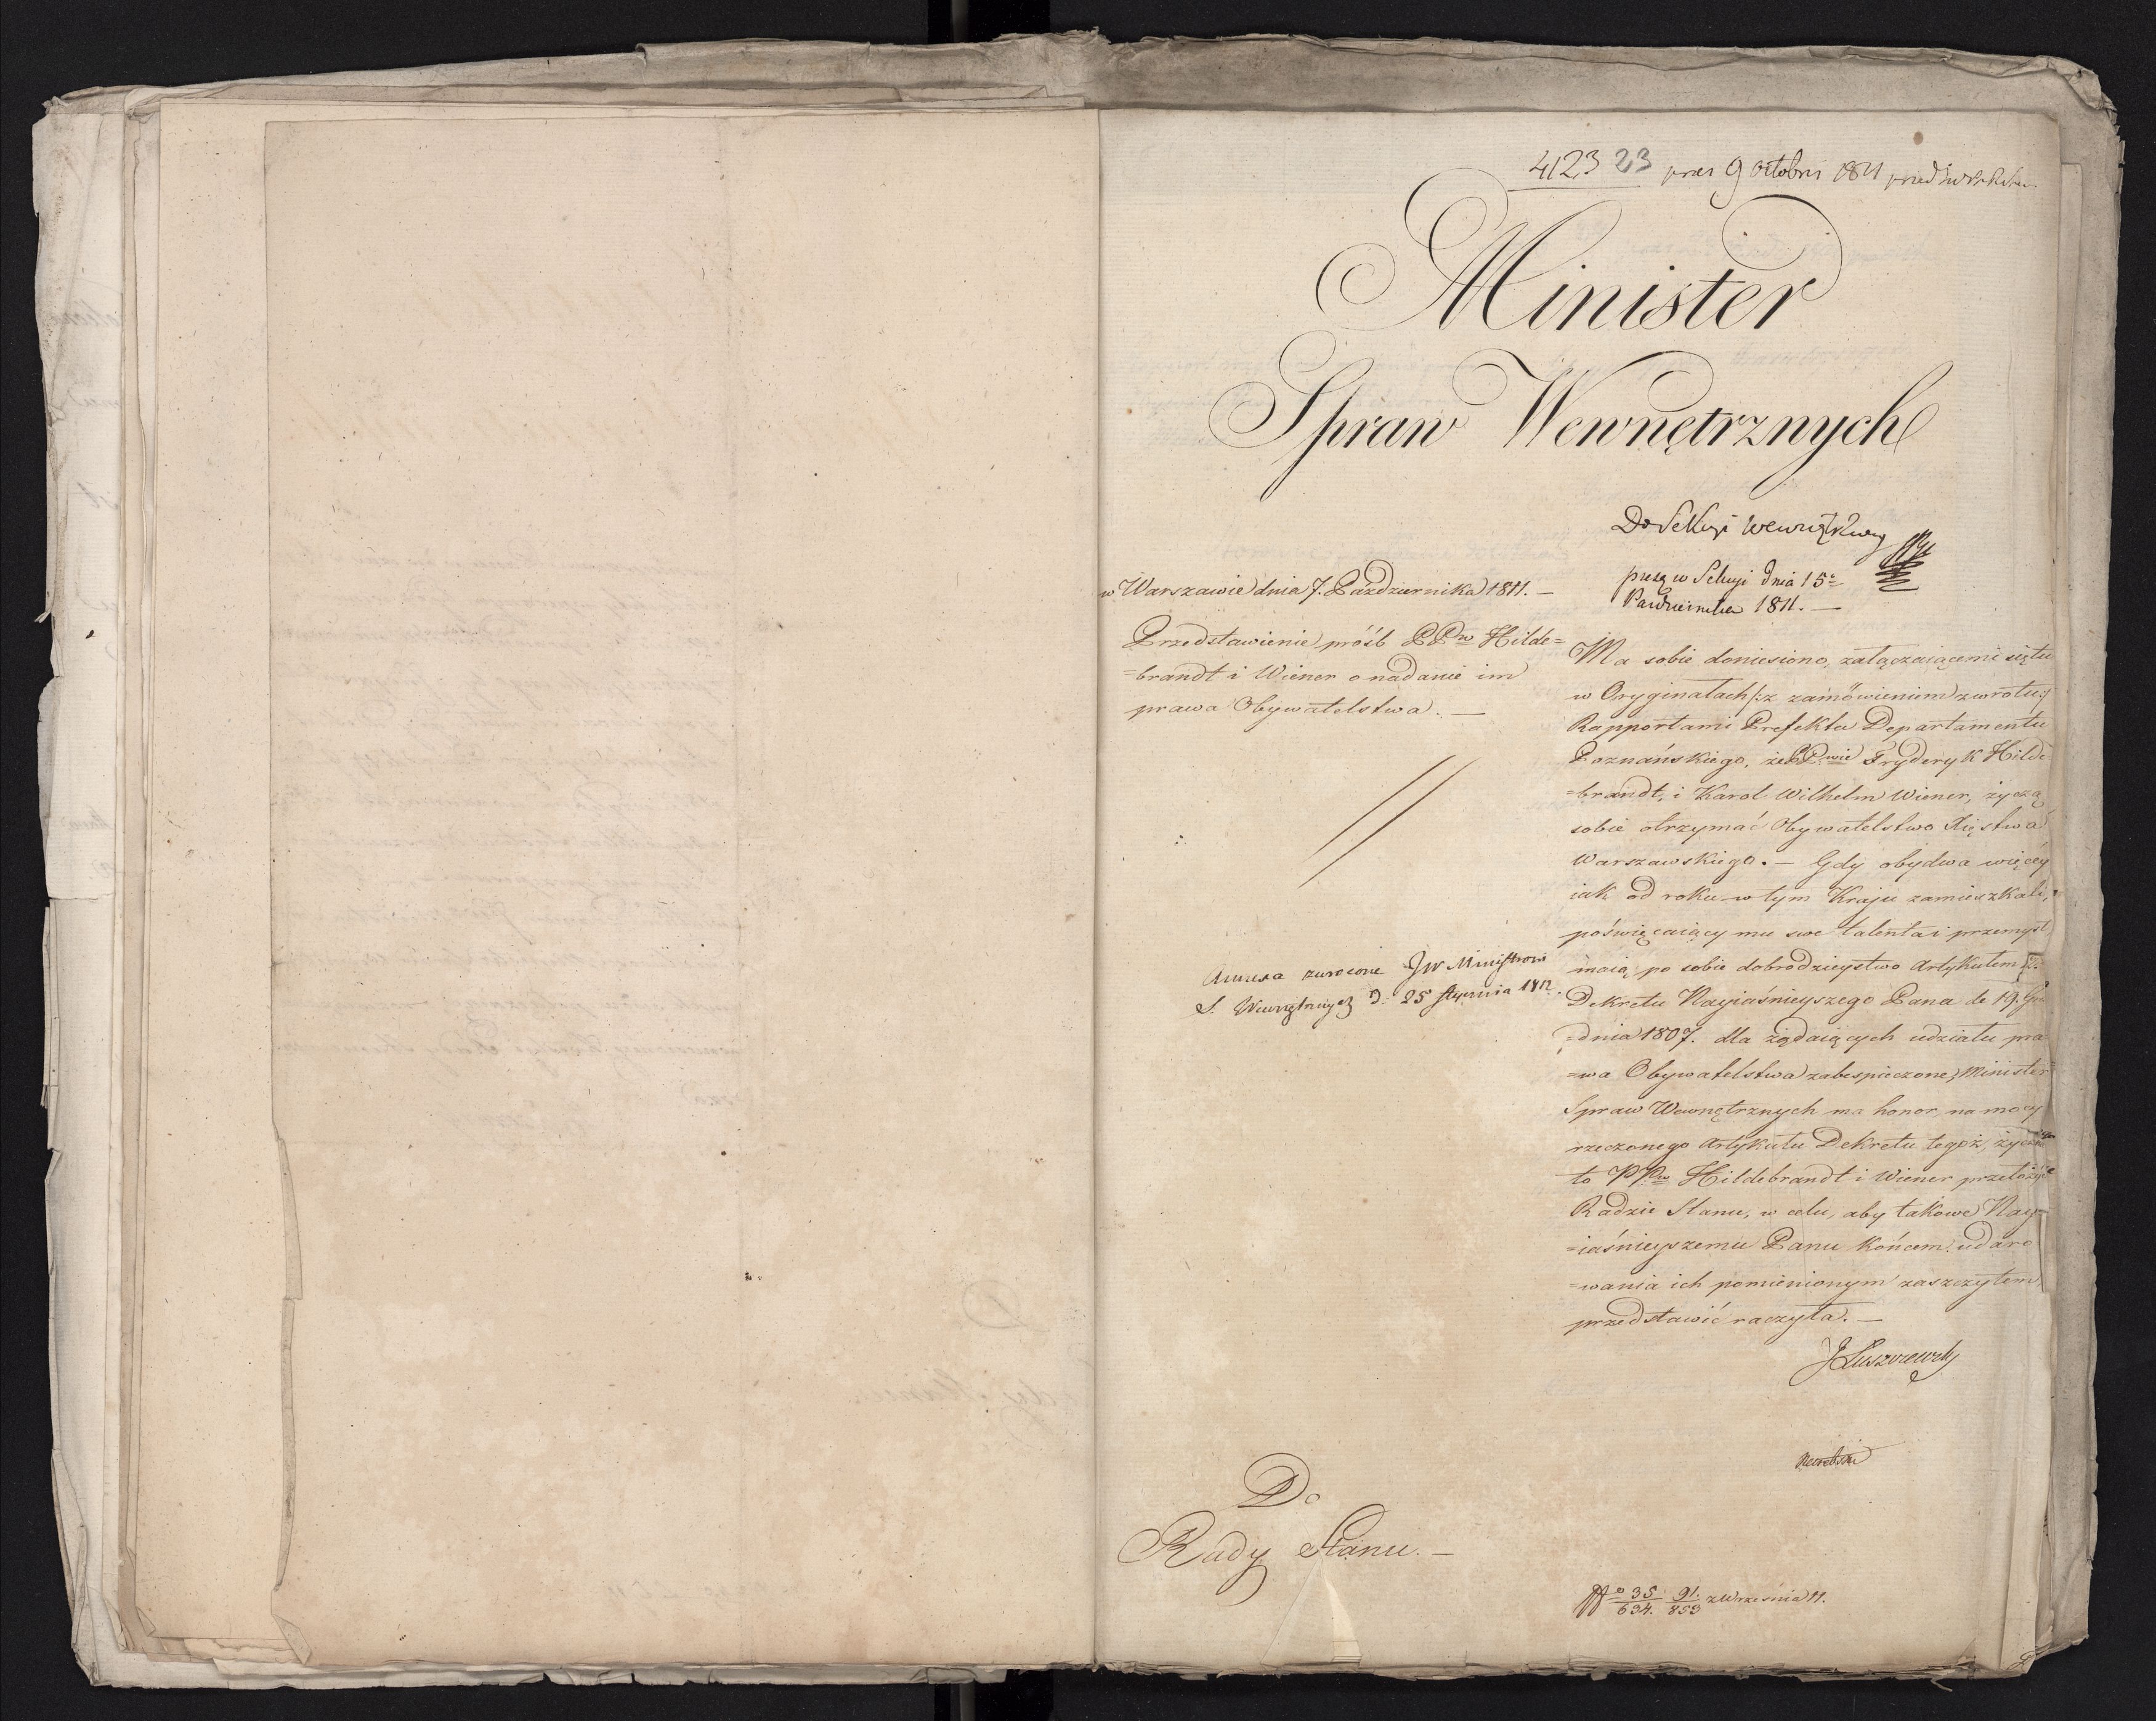 4123 23 pres 9 octobris 1811
Minister
Spraw Wewnętrznych
Do Sekcyi Wewnętrzney
prez w Sekcyi dnia 15º
Pazdziernika 1811. —
w Warszawie dnia 7. Października 1811. —
Przedstawienie próśb PPw Hilde=
=brandt i Wiener o nadanie im
prawa Obywatelstwa. —
Annexa zwrocone JW Ministrowi
S. Wewnętrznych D. 25 stycznia 1812.
Ma sobie doniesiono, załączaiącemi się tu
w Oryginałach /:z zamówieniem zwrotu:/
Rapportami Prefekta Departamentu
Poznańskiego, że PPwie Fryderyk Hilde
=brandt, i Karol Wilhelm Wiener, życzą
sobie otrzymać Obywatelstwo Xięstwa
Warszawskiego. — Gdy obydwa więcey
iak od roku w tym Kraju zamieszkali,
poświęcaiący mu swe talenta i przemysł
maią po sobie dobrodzieystwo Artykułem
Dekretu Nayiaśnieyszego Pana de 19. Gru
=dnia 1807. dla żądaiących udziału pra
=wa Obywatelstwa zabespieczone; Minister
Spraw Wewnętrznych ma honor, na mocy
rzeczonego Artykułu Dekretu tegoż,
to PPw Hildebrandt i Wiener przełożyć
Radzie Stanu, w celu, aby takowe Nay=
=iaśnieyszemu Panu końcem udaro
=wania ich pomienionym zaszczytem
przedstawić raczyła. —
J Łuszczewski
Do
Rady Stanu. —
Nº 35/634. 91./853 z Września 11.